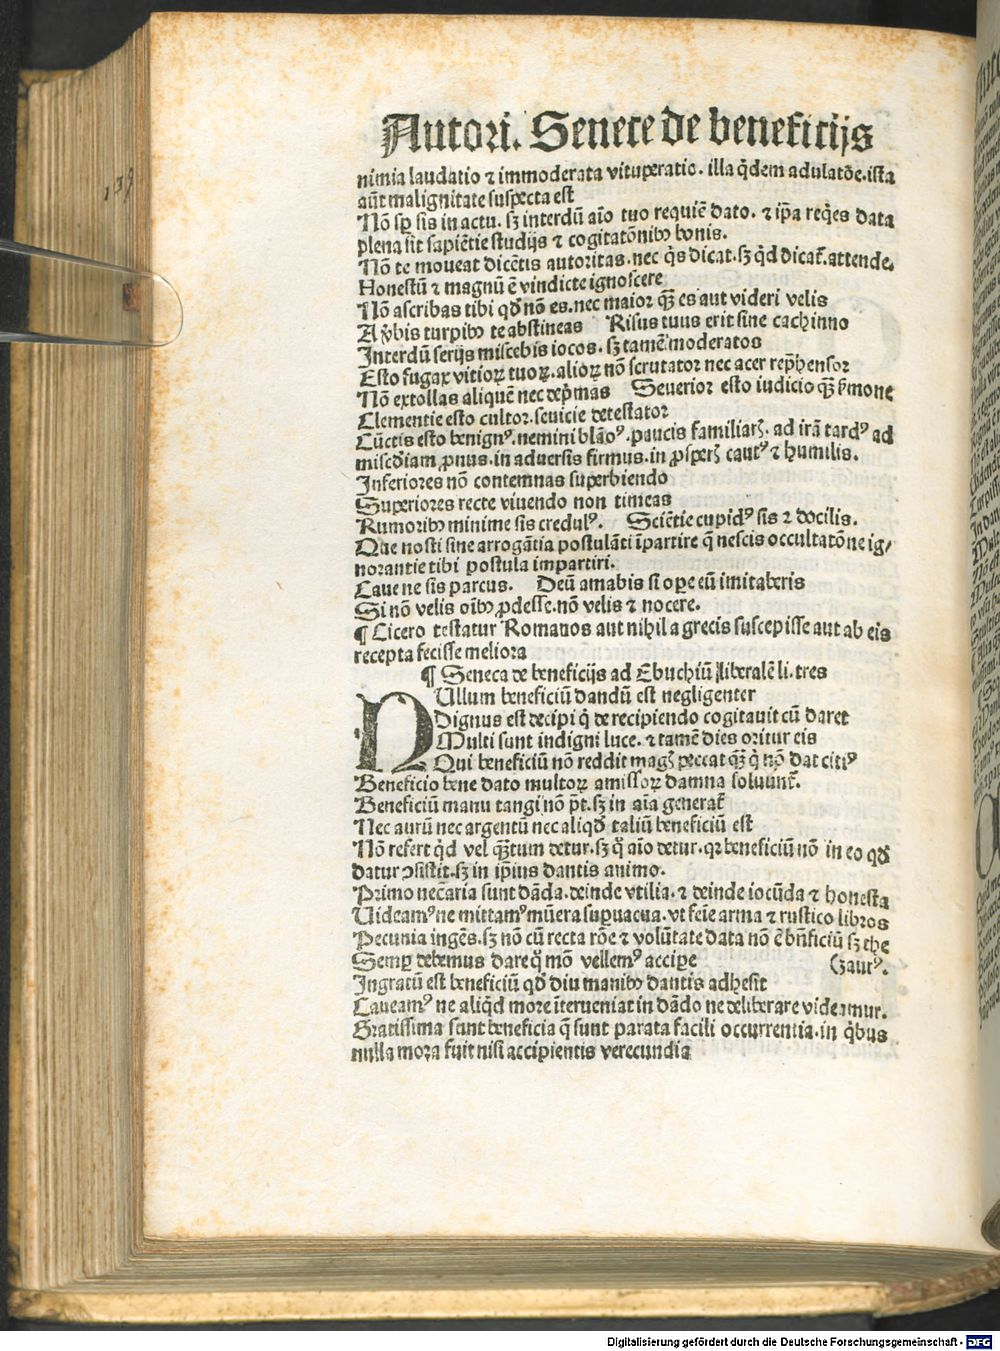 Autori. Senece de beneficijs
nimia laudatio ⁊ immoderata vituperatio. illa q̇dem adulatōe. ista
aūt malignitate suspecta est
Nō sp̱ sis in actu. sꝫ interdū aīo tuo requiē dato. ⁊ ip̄a reqes data
plena sit sapiētie studijs ⁊ cogitatōnibꝰ bonis.
Nō te moueat dicētis autoritas. nec q̇s dicat. sꝫ q̇d dicat̄. attende.
Honestū ⁊ magnū ē vindicte ignoscere
Nō ascribas tibi qd̄ nō es. nec maior q̄ꝫ es aut videri velis
A v̄bis turpibꝰ te abstineas Risus tuus erit sine cachinno
Interdū serijs miscebis iocos. sꝫ tamē moderatos
Esto fugax vitioꝝ tuoꝝ. alioꝝ nō scrutator nec acer rep̄hensor
Nō extollas aliquē nec dep̄mas Seuerior esto iudicio q̄ꝫ s̄mone
Clementie esto cultor. seuicie detestator
Cūctis esto benignꝰ. nemini blāꝰ. paucis familiarꝭ. ad irā tardꝰ ad
misc̄diam ꝓnus. in aduersis firmus. in ꝓsperꝭ cautꝰ ⁊ humilis.
Inferiores nō contemnas superbiendo
Superiores recte viuendo non timeas
Rumoribꝰ minime sis credulꝰ. Sciētie cupidꝰ sis ⁊ docilis.
Que nosti sine arrogātia postulāti īpartire q̄ nescis occultatōne ig/
norantie tibi postula impartiri.
Caue ne sis parcus. Deū amabis si oꝑe eū imitaberis
Si nō velis oībꝰ ꝓdesse. nō velis ⁊ nocere.
¶ Cicero testatur Romanos aut nihil a grecis suscepisse aut ab eis
recepta fecisse meliora
¶ Seneca de beneficijs ad Ebuchiū liberalē li. tres
NUllum beneficiū dandū est negligenter
Dignus est decipi q̇ de recipiendo cogitauit cū daret
Multi sunt indigni luce. ⁊ tamē dies oritur eis
Qui beneficiū nō reddit magꝭ peccat q̄ꝫ q̇ nō dat citiꝰ
Beneficio bene dato multoꝝ amissoꝝ damna soluunt̄.
Beneficiū manu tangi nō p̄t. sꝫ in aīa generat̄
Nec aurū nec argentū nec aliqd̄ taliū beneficiū est
Nō refert q̇d vel q̄ꝫtum detur. sꝫ q̊ aīo detur. qꝛ beneficiū nō in eo qd̄
datur ꝯsistit. sꝫ in ip̄ius dantis animo.
Primo nec̄aria sunt dāda. deinde vtilia. ⁊ deinde iocūda ⁊ honesta
Uideamꝰ ne mittamꝰ mūera suꝑuacua. vt feīe arma ⁊ rustico libros
Pecunia ingēs. sꝫ nō cū recta rōe ⁊ volūtate data nō ē bn̄ficiū sꝫ the
Semꝑ debemus dare q̊ mō vellemꝰ acciꝑe (zaurꝰ.
Ingratū est beneficiū qd̄ diu manibꝰ dantis adhesit
Caueamꝰ ne aliqd̄ more īterueniat in dādo ne deliberare videamur.
Gratissima sunt beneficia q̄ sunt parata facili occurrentia. in q̇bus
nulla mora fuit nisi accipientis verecundia
Digitalisierung gefördert durch die Deutsche Forschungsgemeinschaft - DFG